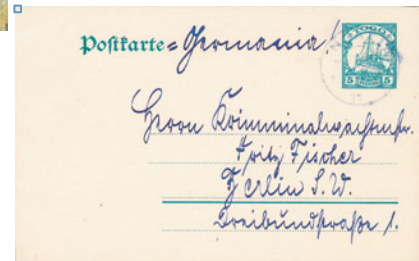 TOGO
Postkarte = Germania!
5 5
Herrn Kriminalwachtmstr.
Fritz Fischer
Berlin S.W.
Dreibundstraße 1.